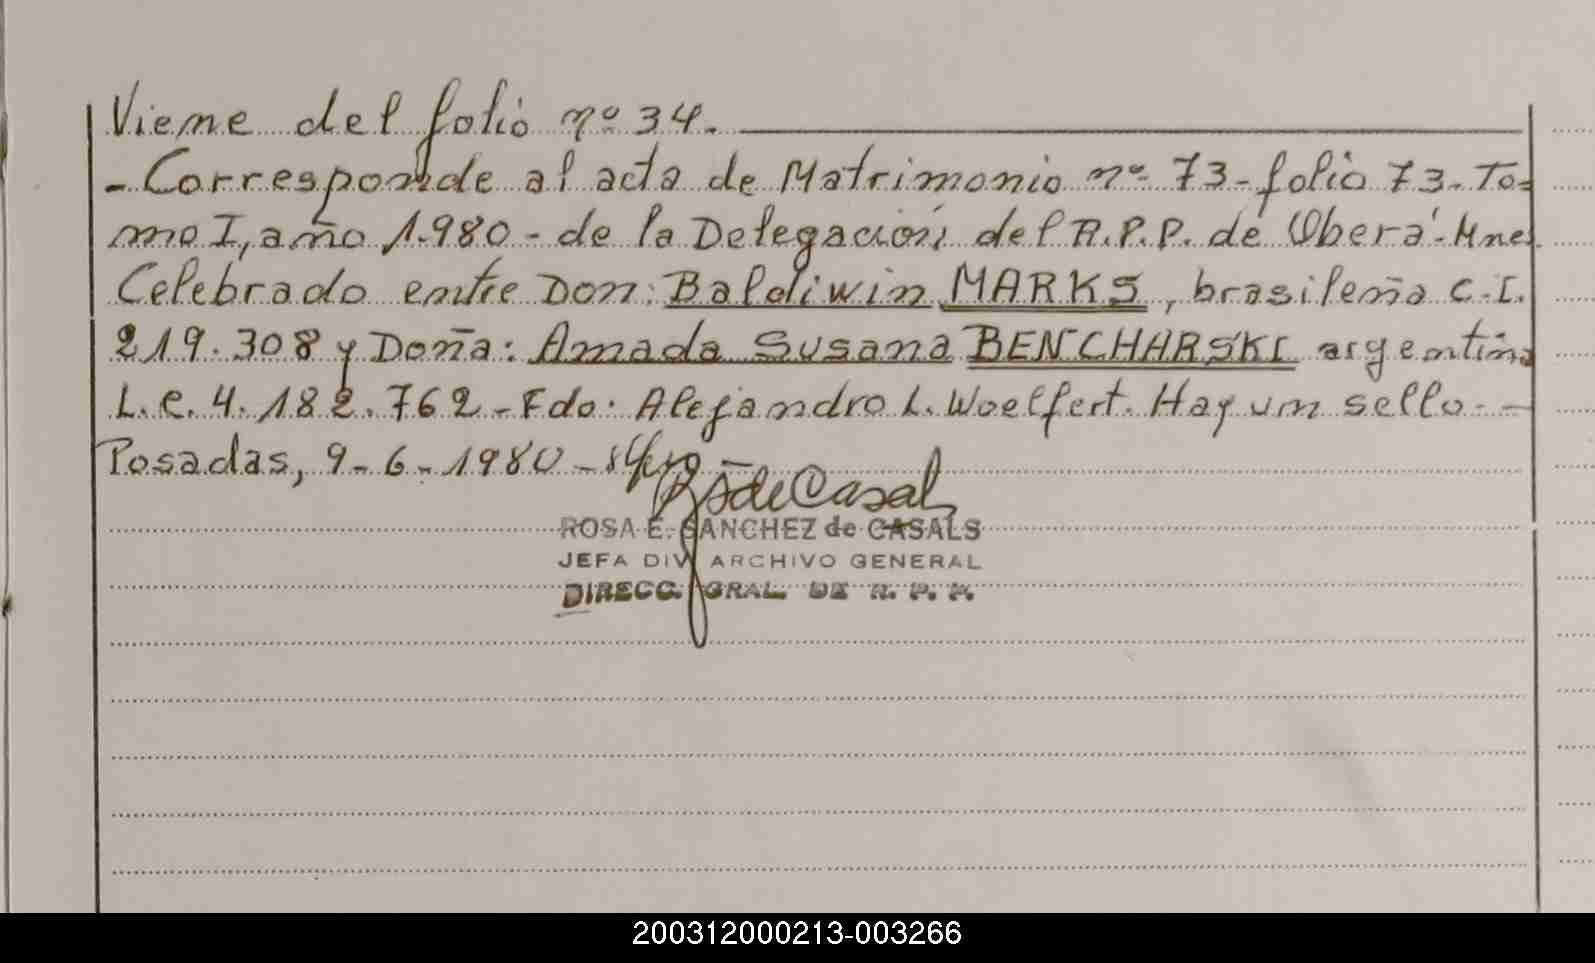 Viene del folio nº 34.
- Corresponde al acta de Matrimonio nº 73 - folio 73 - To-
mo I, año 1.980 - de la Delegación del R.P.P. de Oberá - Mnes.
Celebrado entre Don: Baldiwin MARKS, brasileña C.I.
219.308 y Doña: Amada Susana BENCHARSKI argentina
L.e. 4.182.762 - Fdo. Alejandro L. Woelfert. Hay un sello. -
Posadas, 9-6-1980 -
RSdeCasal
ROSA E. SANCHEZ de CASALS
JEFA DIV ARCHIVO GENERAL
DIRECC. GRAL. DE R. P. P.
200312000213-003266